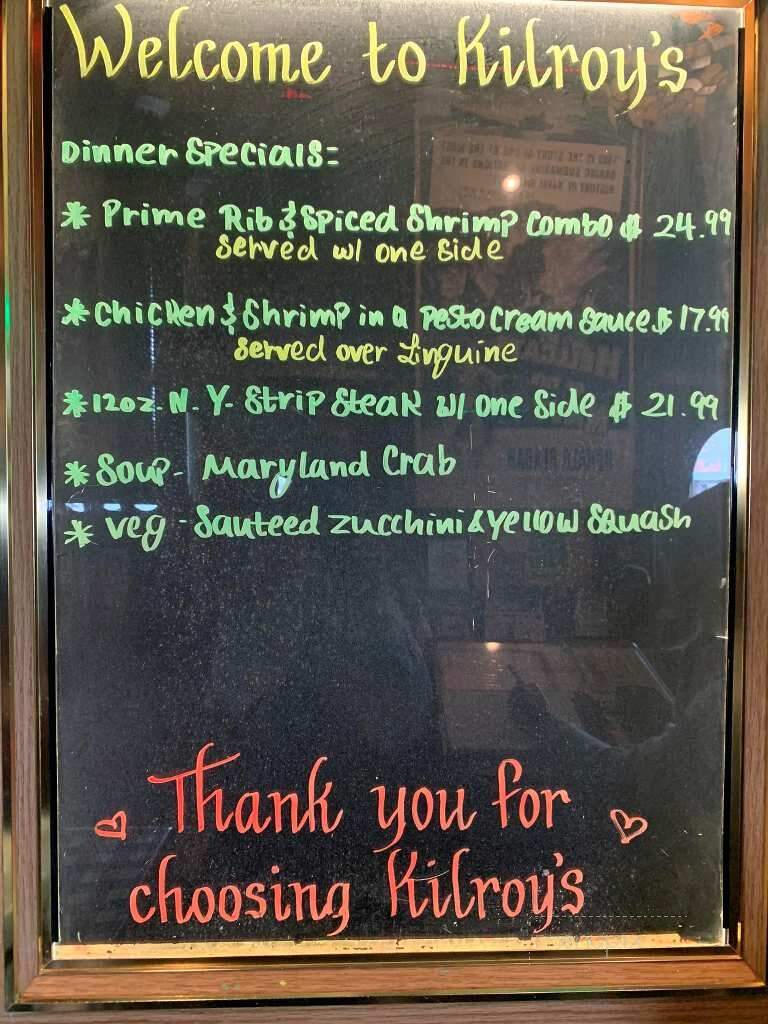 Welcome to Kilroy's
Dinner Specials:
* Prime Rib & Spiced Shrimp Combo $ 24.99
Served w/ one Side
* Chicken & Shrimp in a Pesto Cream Sauce $ 17.99
Served over Linguine
* 12oz. N.Y. Strip Steak w/ one Side $ 21.99
* Soup - Maryland Crab
* Veg - Sauteed Zucchini & Yellow Squash
Thank you for
choosing Kilroy's